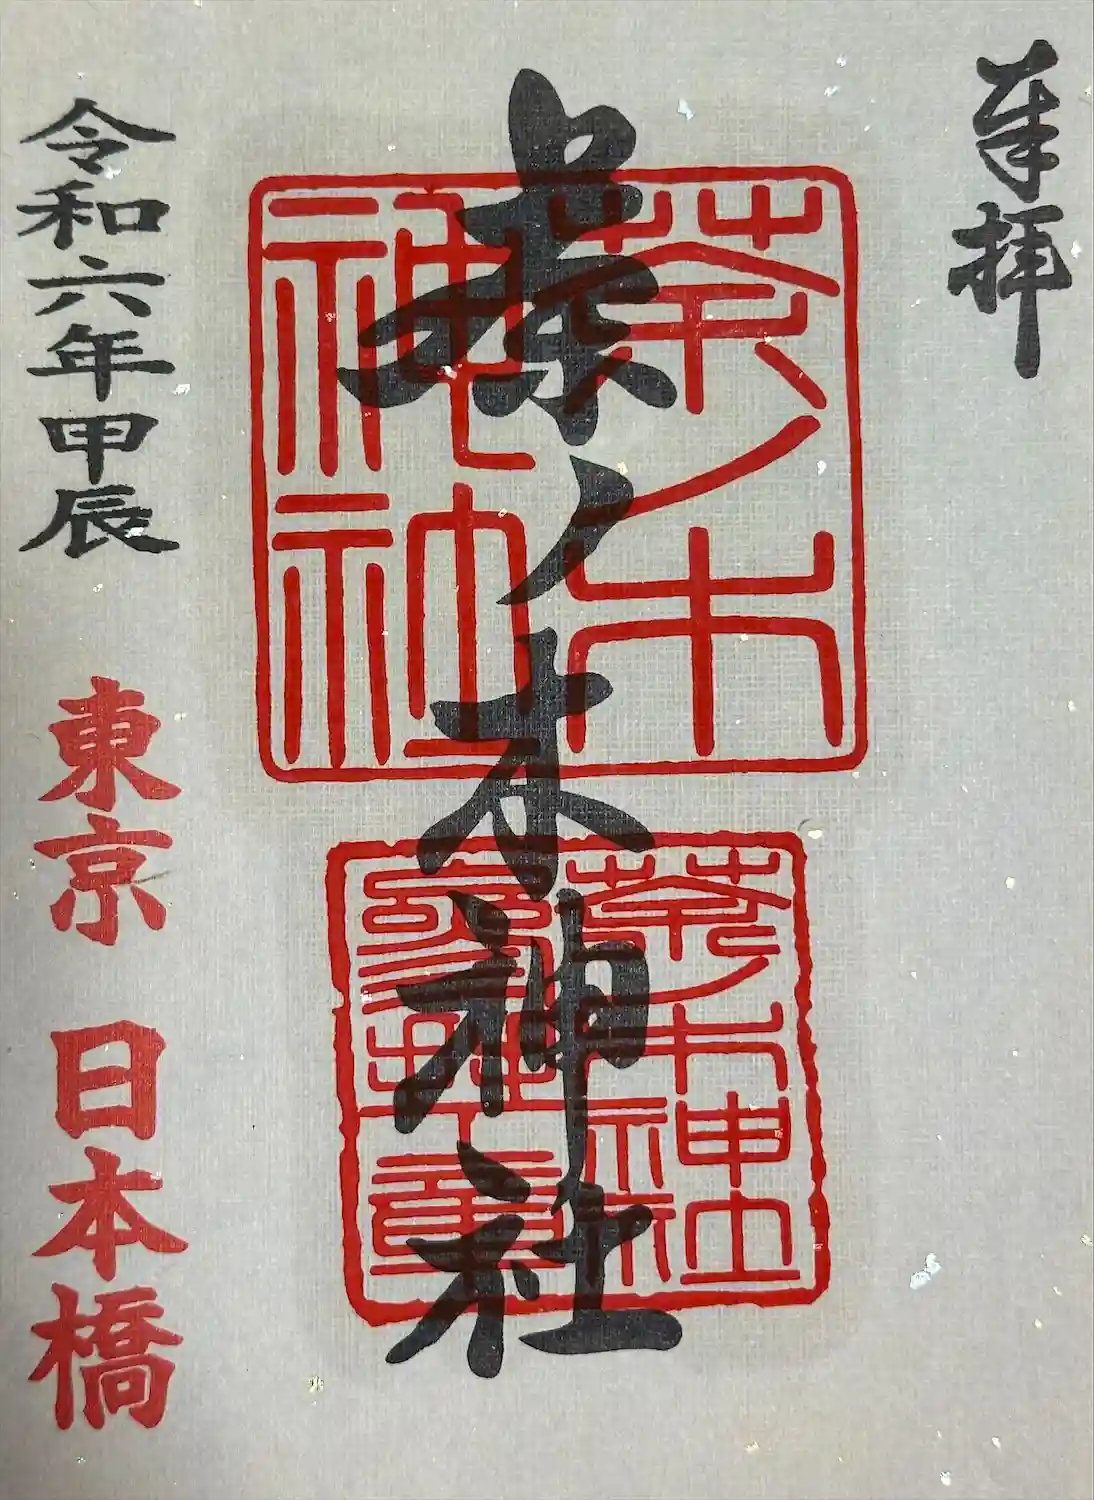 奉拝
茶ノ木神社
茶ノ木
神社
茶ノ木神社
令和六年甲辰 東京 日本橋